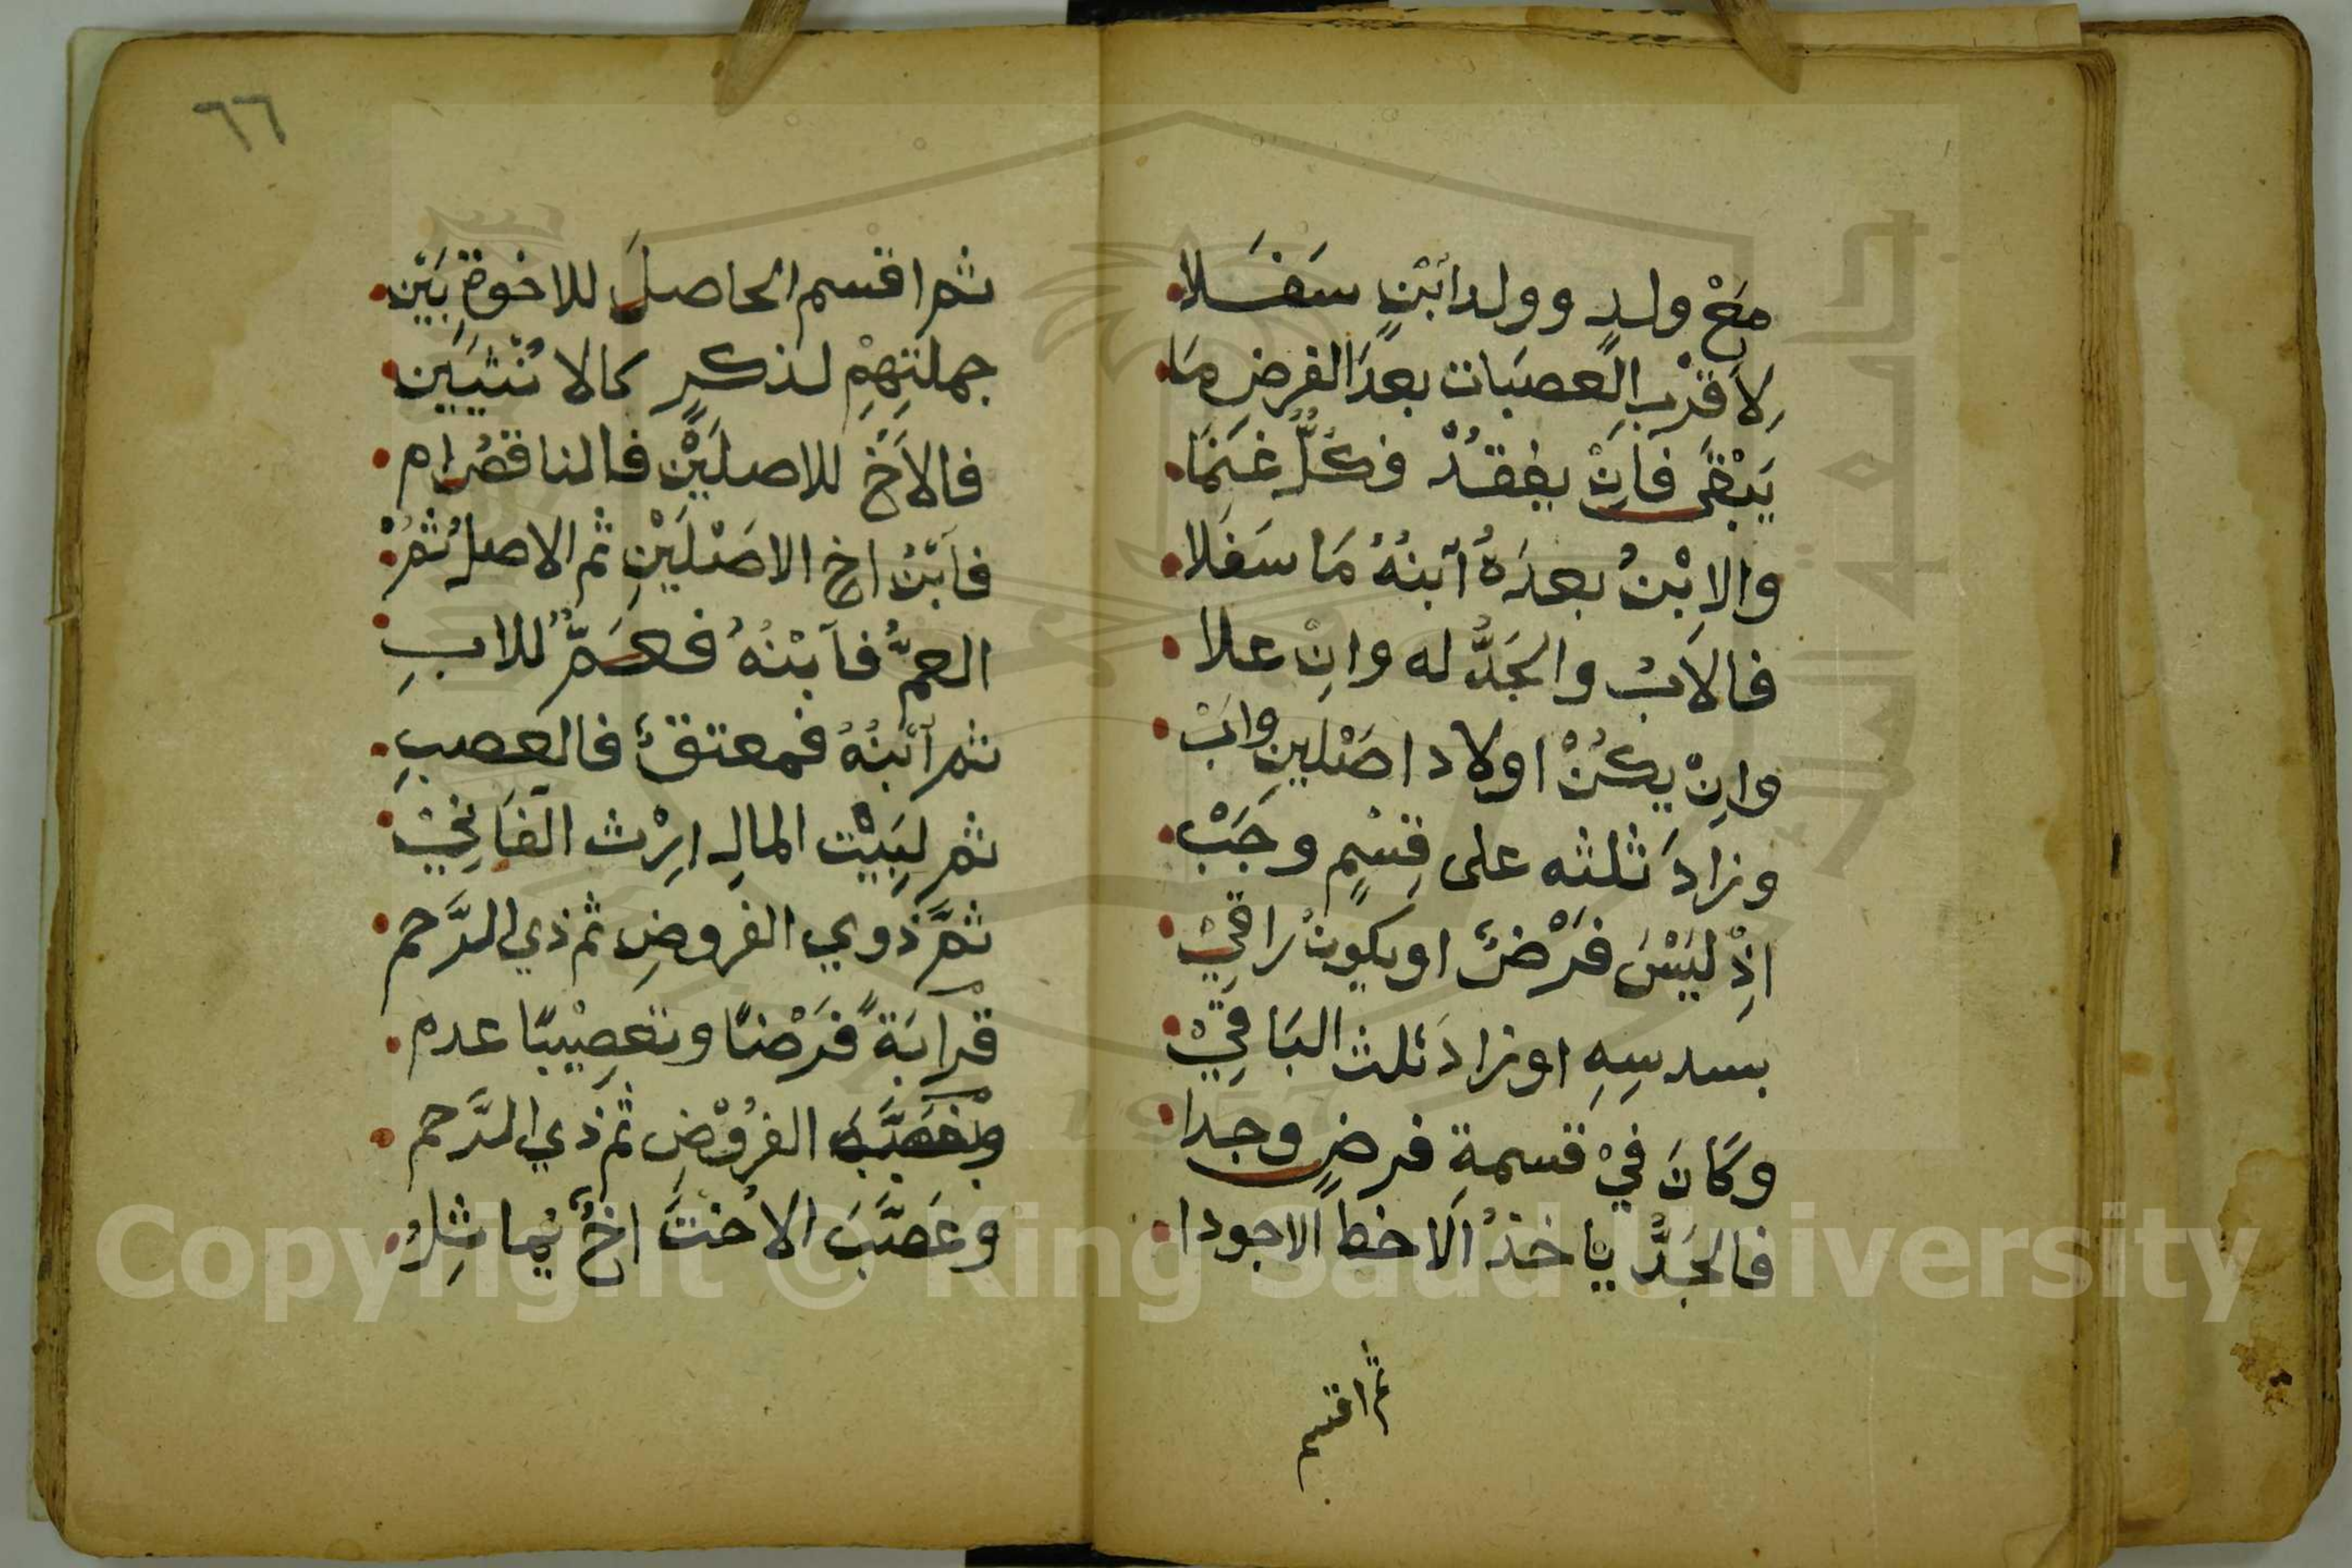 مَعْ ولدٍ وولد ابْنٍ سَفَلا
لِاَقْرَبِ العصبَات بعدَ الفرضِ مَا
يَبْقَى فَاِنْ يفقدْ فكلٌّ غَنِمَا
والاِبْنُ بعدَهُ اَبنُهُ مَا سَفَلا
فالاَبُ والجَدُّ له وانِ علا
وانِْ يكُنْ اولاد اصْلينِ واَبْ
وزادَ ثلثه على قِسْمٍ وجَبْ
اذِْ ليَْسَ فَرْضٌ او يكونُ راقيِْ
بسدسِهِ او زادَ ثلث البَاقيِْ
وكَانَ فيْ قسمةِ فرضٍ وجدا
فالجَدُّ يأخذُ الاحظ الاجودا
ثم اقسم
٦٦
ثم اقسم الحاصلَ للاخوةِ بَيْن
جملتِهِمْ لذكرٍ كالاُنْثيَيَن
فالاَخُ للاصليَْنِ فالناقصُ ام
فاَبْنُ اخِ الاصْليَْنِ ثم الاصلُ ثمْ
العمُّ فاَبْنُهُ فعَمٌّ للابِ
ثم اَبْنُهُ فمعتقٌ فالعصبِ
ثم لِبَيْت المالِ ارِْث الفَانيِْ
ثمَّ ذوي الفروضِ ثم ذي الرَّحم
قرابَةً فَرْضًا وتعَصِيْبًا عدم
الفرُوْضِ ثم ذي الرَّحم
وعَصَّبَ الاُختَ اخٌ يُماثِلُ
Copyright © King Saud University
1957